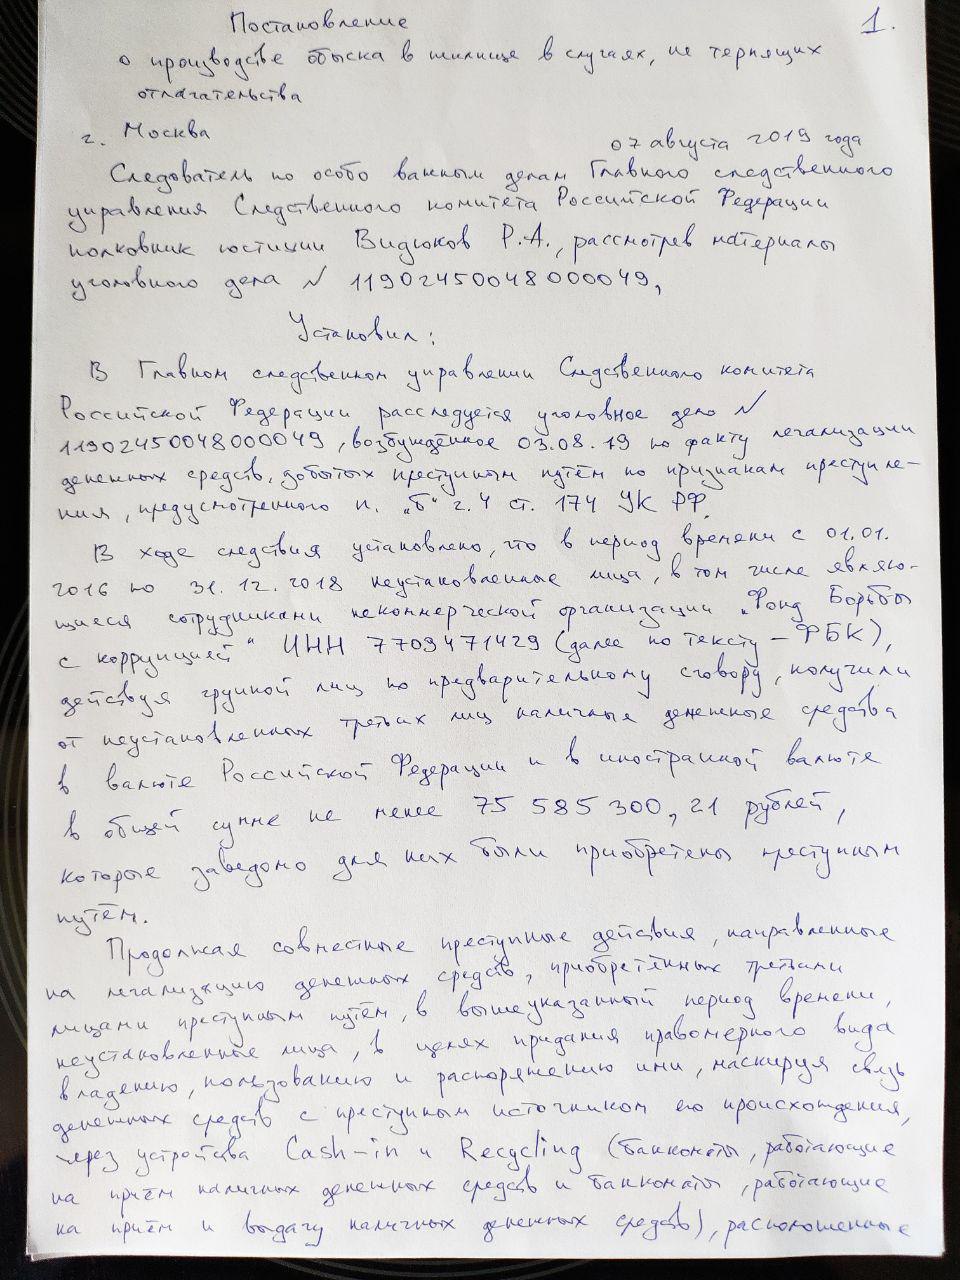 1.
Постановление
о производстве обыска в жилище в случаях, не терпящих
отлагательства
г. Москва
07 августа 2019 года
Следователь по особо важным делам Главного следственного
управления Следственного комитета Российской Федерации
полковник юстиции Видюков Р.А., рассмотрев материалы
уголовного дела № 11902450048000049,
Установил:
В Главном следственном управлении Следственного комитета
Российской Федерации расследуется уголовное дело №
11902450048000049, возбуждённое 03.08.19 по факту легализации
денежных средств, добытых преступным путём по признакам преступле-
ния, предусмотренного п. „б" ч. 4 ст. 174 УК РФ.
В ходе следствия установлено, что в период времени с 01.01.
2016 по 31.12.2018 неустановленные лица, в том числе являю-
щиеся сотрудниками некоммерческой организации „Фонд Борьбы
с коррупцией" ИНН 7709471429 (далее по тексту – ФБК),
действуя группой лиц по предварительному сговору, получили
от неустановленных третьих лиц наличные денежные средства
в валюте Российской Федерации и в иностранной валюте
в общей сумме не менее 75 585 300,21 рублей,
которые заведомо для них были приобретены преступным
путём.
Продолжая совместные преступные действия, направленные
на легализацию денежных средств, приобретённых третьими
лицами преступным путём, в вышеуказанный период времени,
неустановленные лица, в целях придания правомерного вида
владению, пользованию и распоряжению ими, маскируя связь
денежных средств с преступным источником его происхождения,
через устройства Cash-in и Recycling (банкоматы, работающие
на приём наличных денежных средств и банкоматы, работающие
на приём и выдачу наличных денежных средств), расположенные